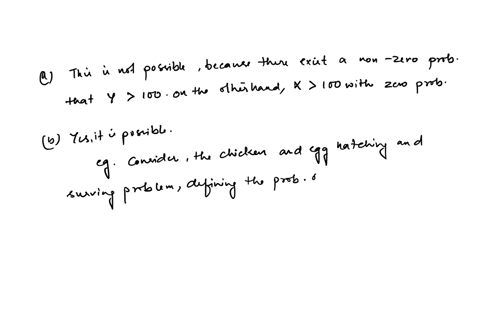 (a) This is not possible, because there exist a non-zero prob.
that Y > 100. on the otherhand, X > 100 with zero prob.
(b) Yes, it is possible.
eg. Consider, the chicken and egg hatching and
surving problem, defining the prob.